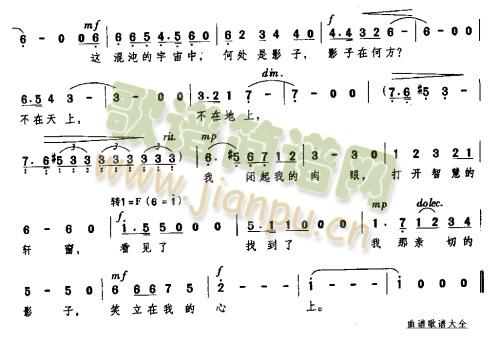 mf f
6 - 0 0 6 | 6 6 5 4. 5 6 0 | 6 2 3 4 4 0 | 4. 4 3 2 6 - | 6 - 0 0 |
这 混沌的宇宙中, 何处是影子, 影子在何方?
din.
6. 5 4 3 - | 3 - 0 0 | 3. 2 1 7 - | 7 - 0 0 | (7. 6 #5 3 -
不在天上, 不在地上,
rit. mp
7. 6 #5 3 3 3 3 3 3 3) | 6. #5 6 7 1 2 | 3 - 3 0 | 1 2 3 2 1
我 闭起我的肉 眼, 打开智慧的
转1=F (6=i) f mp dolec.
6 - 6 0 | i. 5 5 0 0 0 | 5. 1 1 0 0 0 | 1. 7 1 2 3 4
轩 窗, 看见了 找到了 我那亲切的
mf f
5 - 5 0 | 6 6 6 7 5 | 2 - - - | i - - - | i 0 0 0 ‖
影 子, 笑立在我的 心 上。
曲谱歌谱大全
歌谱简谱网
www.jianpu.cn